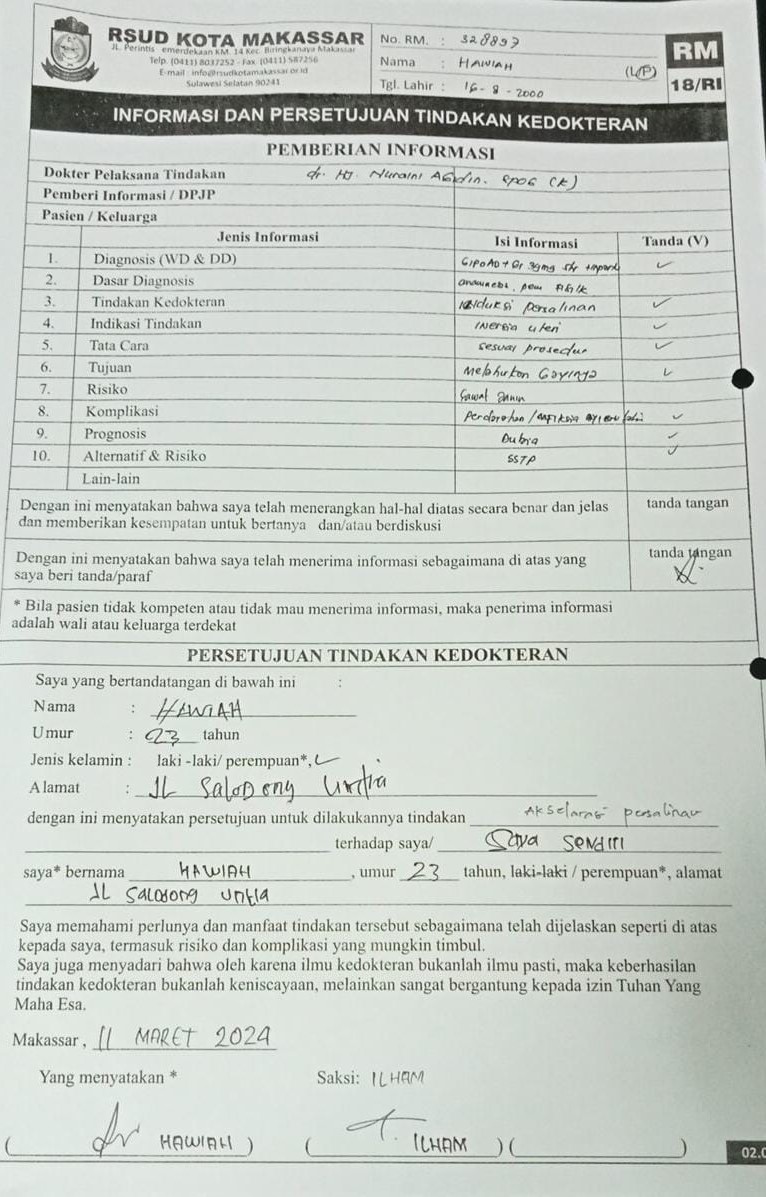 RSUD KOTA MAKASSAR
JL. Perintis emerdekaan KM. 14 Kec. Biringkanaya Makassar
Telp. (0411) 8037252 - Fax. (0411) 587256
E-mail : info@rsudkotamakassar.or.id
Sulawesi Selatan 90241
No. RM. : 328897
Nama : HAWIAH (L/P)
Tgl. Lahir : 16 - 8 - 2000
RM
18/RI
INFORMASI DAN PERSETUJUAN TINDAKAN KEDOKTERAN
PEMBERIAN INFORMASI
Dokter Pelaksana Tindakan dr. Hj. Nuraini Abidin. SpOG (K)
Pemberi Informasi / DPJP
Pasien / Keluarga
Jenis Informasi Isi Informasi Tanda (V)
1. Diagnosis (WD & DD) G1P0A0 + Gr ✓
2. Dasar Diagnosis
3. Tindakan Kedokteran Induksi persalinan ✓
4. Indikasi Tindakan Inersia uteri ✓
5. Tata Cara sesuai prosedur ✓
6. Tujuan Melahirkan Bayinya ✓
7. Risiko Gawat Janin
8. Komplikasi Perdarahan / ✓
9. Prognosis Dubia ✓
10. Alternatif & Risiko SSTP ✓
Lain-lain
Dengan ini menyatakan bahwa saya telah menerangkan hal-hal diatas secara benar dan jelas tanda tangan
dan memberikan kesempatan untuk bertanya dan/atau berdiskusi
Dengan ini menyatakan bahwa saya telah menerima informasi sebagaimana di atas yang tanda tangan
saya beri tanda/paraf
* Bila pasien tidak kompeten atau tidak mau menerima informasi, maka penerima informasi
adalah wali atau keluarga terdekat
PERSETUJUAN TINDAKAN KEDOKTERAN
Saya yang bertandatangan di bawah ini :
Nama : HAWIAH
Umur : 23 tahun
Jenis kelamin : laki -laki/ perempuan*, ✓
Alamat : JL Salodong Untia
dengan ini menyatakan persetujuan untuk dilakukannya tindakan Akselarasi persalinan
terhadap saya/ Saya Sendiri
saya* bernama HAWIAH, umur 23 tahun, laki-laki / perempuan*, alamat
JL Salodong Untia
Saya memahami perlunya dan manfaat tindakan tersebut sebagaimana telah dijelaskan seperti di atas
kepada saya, termasuk risiko dan komplikasi yang mungkin timbul.
Saya juga menyadari bahwa oleh karena ilmu kedokteran bukanlah ilmu pasti, maka keberhasilan
tindakan kedokteran bukanlah keniscayaan, melainkan sangat bergantung kepada izin Tuhan Yang
Maha Esa.
Makassar, 11 MARET 2024
Yang menyatakan * Saksi: ILHAM
( HAWIAH ) ( ILHAM ) ( )
02.0